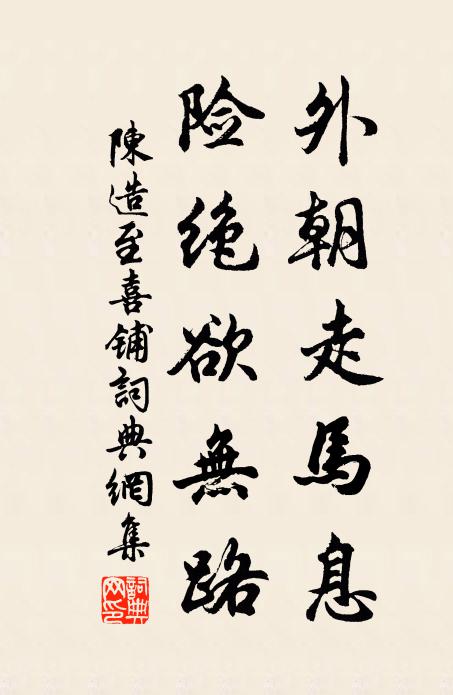 外朝走馬息
险绝欲無路
陳造至喜鋪詞典網集
詞典網印